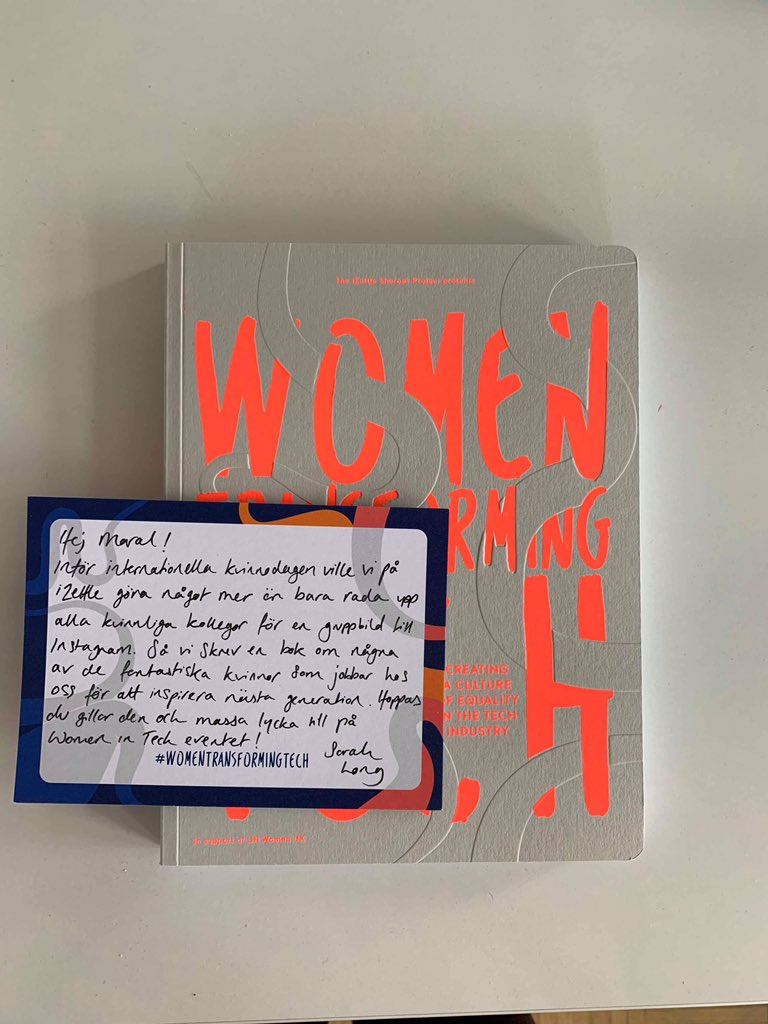 The iZettle Sherout Project presents
WOMEN
TRANSFORMING
H
CREATING
A CULTURE
OF EQUALITY
IN THE TECH
INDUSTRY
In support of UN Women UK
Hej Maral!
Inför internationella kvinnodagen ville vi på
iZettle göra något mer än bara rada upp
alla kvinnliga kollegor för en gruppbild till
Instagram. Så vi skrev en bok om några
av de fantastiska kvinnor som jobbar hos
oss för att inspirera nästa generation. Hoppas
du gillar den och massa lycka till på
Women in Tech eventet!
Sarah
Long
#WOMENTRANSFORMINGTECH